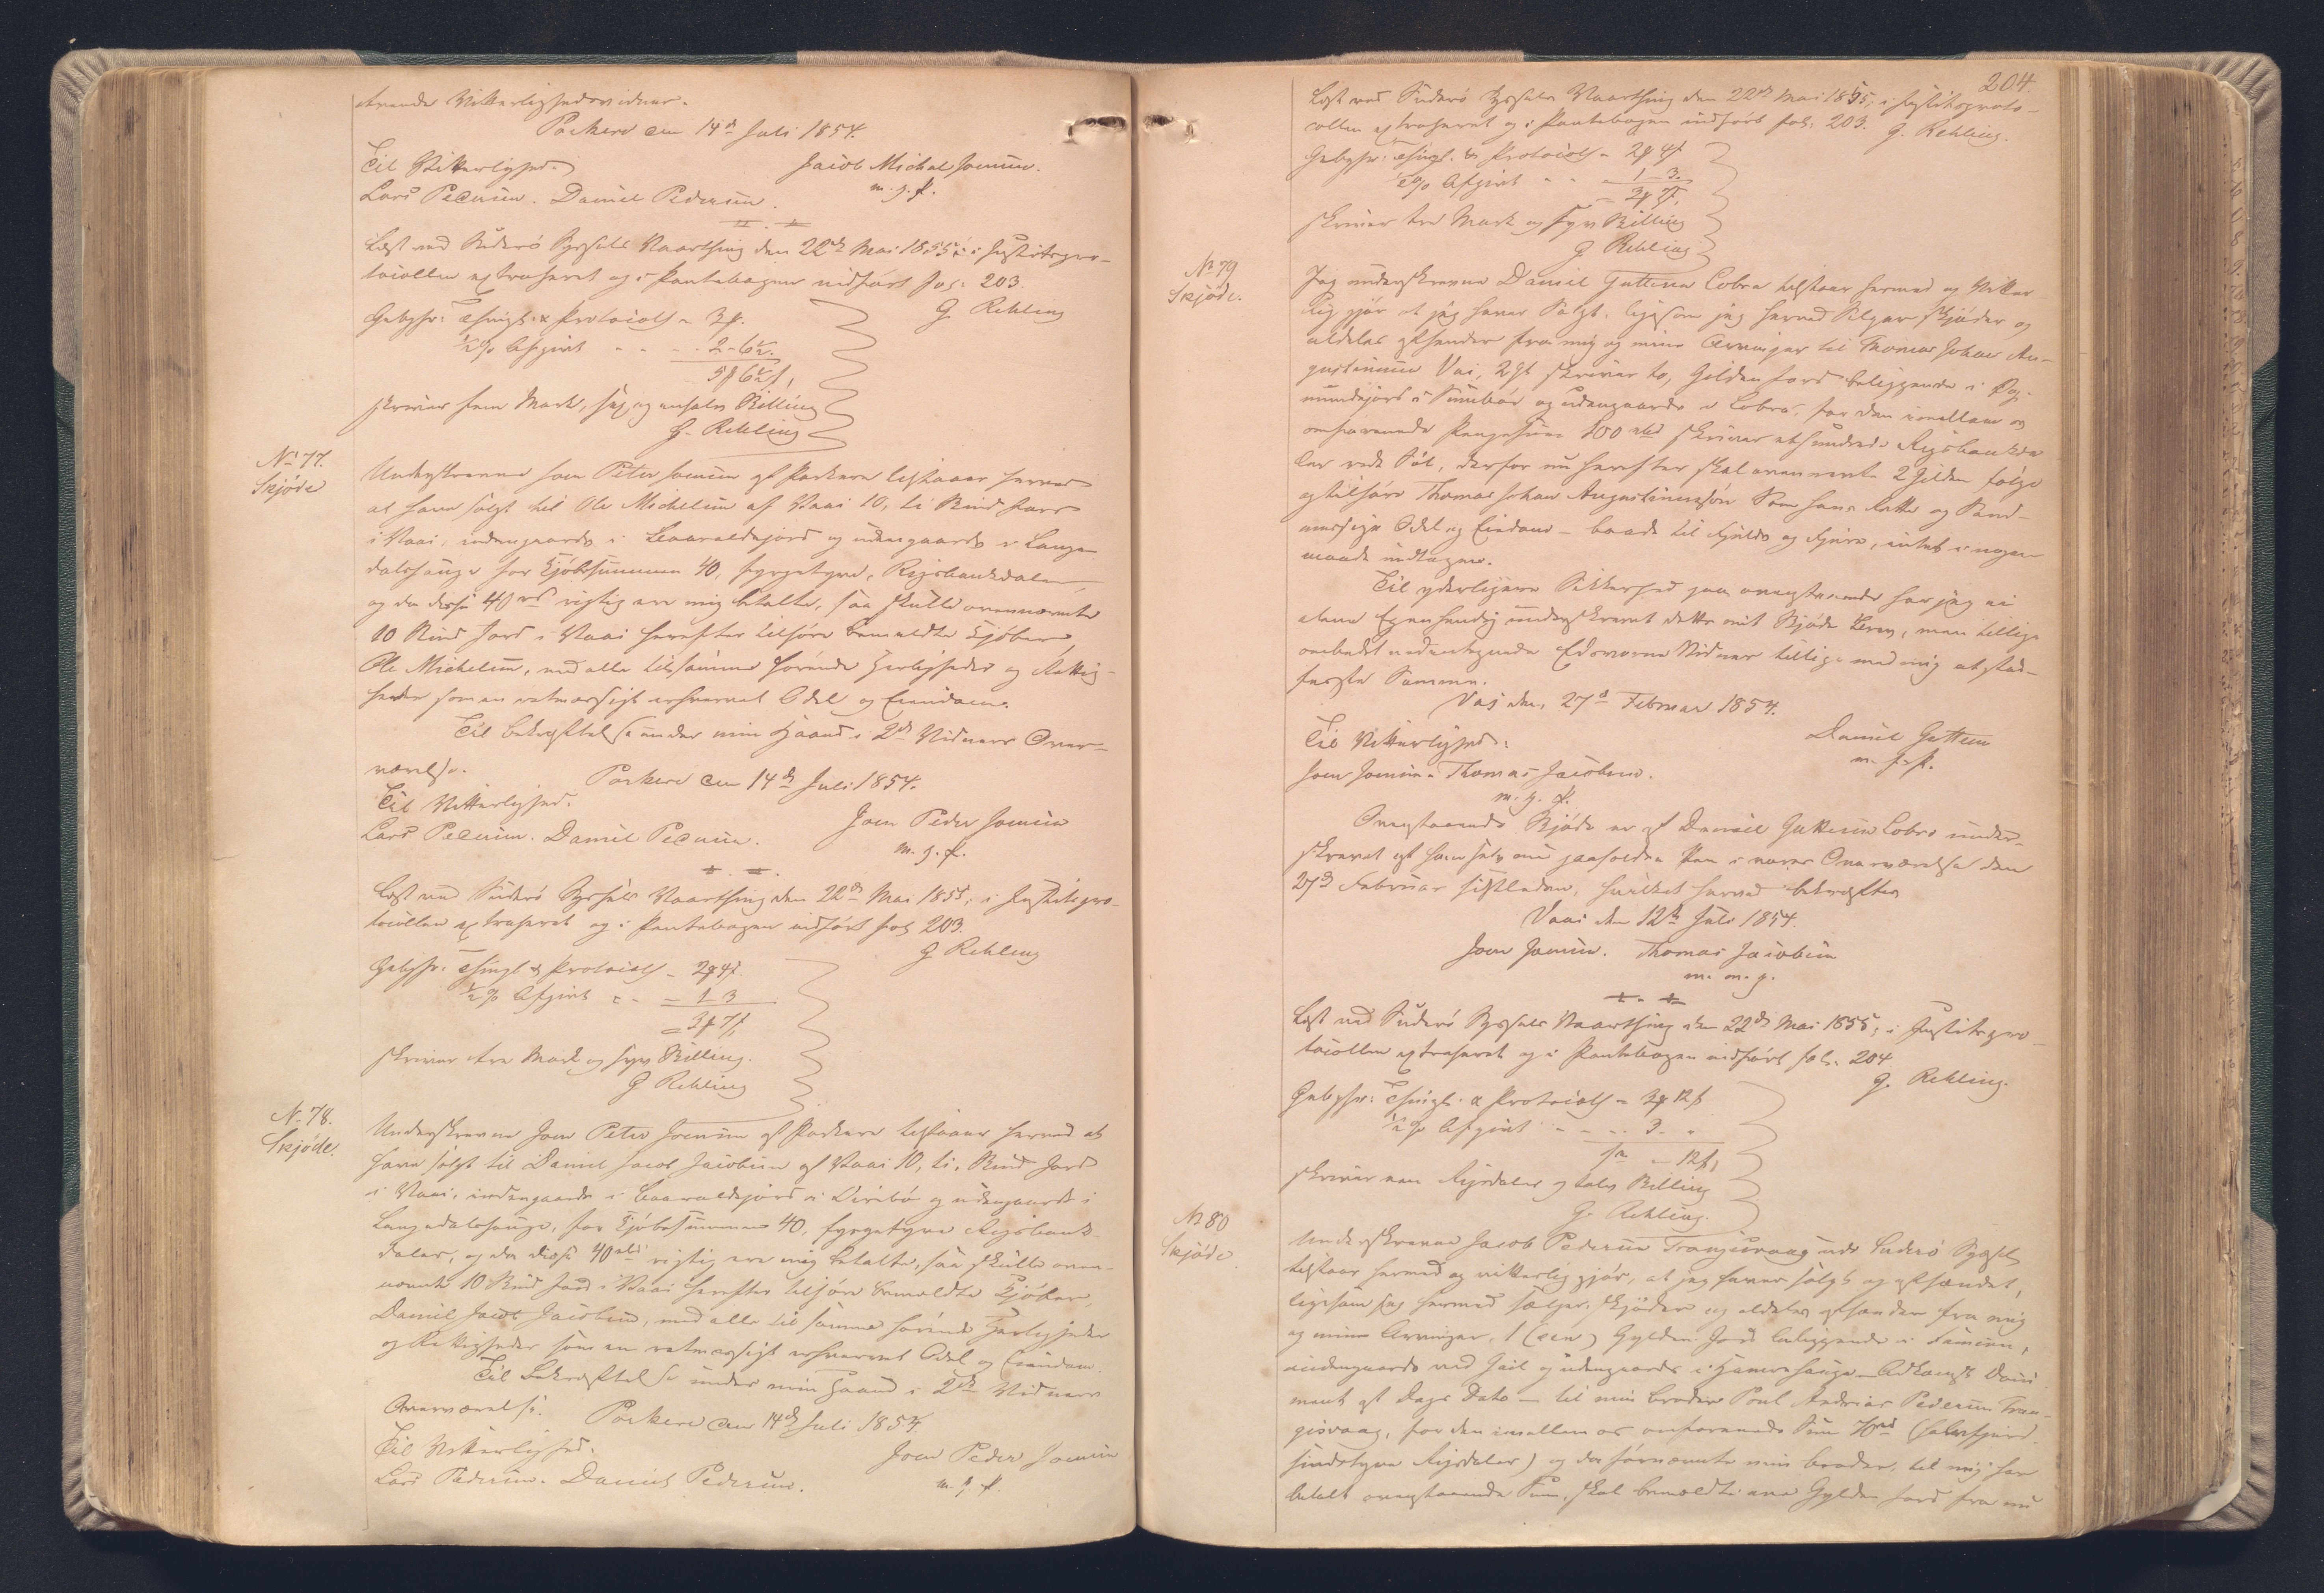 Vitterlighedsvidner.
Porkere den 14de Juli 1854.
Til Vitterlighed. Jacob Michal Joensen.
Lars Pedersen. Daniel Pedersen. m. f. P.
Læst ved Suderø Syssels Vaarthing den 22de Mai 1855; i Justitspro-
tocollen extraheret og i Pantebogen indført fol. 203.
G. Rehling
Gebyhr: Thingl. & Protocoll - 3 ₻.
½ % Afgivt - - - 2 - 6½.
5 ₻ 6½ ß,
skriver fem Mark, sex og en halv Skilling
G. Rehling
No 77.
Skjøde
Underskrevne Joen Peter Joensen af Porkere tilstaaer herved
at have solgt til Ole Michelsen af Vaai 10, ti Skind Jord
i Vaai, indengaards i Laavaldsjord og udengaards i Lange-
dalshauge for Kjøbesummen 40, fyrgetyve, Rigsbankdaler
og da disse 40 rd rigtig ere mig betalte, saa skulle ovennævnte
10 Skind Jord i Vaai herefter tilhøre bemeldte Kjøber,
Ole Michelsen, med alle tilsamme hørende Herligheder og Rettig-
heder som en retmæssigt erhvervet Odel og Eiendom.
Til Bekræftelse under min Haand i 2de Vidners Over-
værelse.
Porkere den 14de Juli 1854.
Til Vitterlighed. Joen Peder Joensen
Lars Pedersen. Daniel Pedersen. m. f. P.
Læst ved Suderø Syssels Vaarthing den 22de Mai 1855; i Justitspro-
tocollen extraheret og i Pantebogen indført fol. 203.
G Rehling
Gebyhr: Thingl & Protocoll - 2 ₻ 4 ß.
½ % Afgivt - - - 1 3
= 3 ₻ 7 ß,
skriver tre Mark og syv Skilling.
G Rehling
No 78.
Skjøde.
Underskrevne Joen Peter Joensen af Porkere tilstaaer herved at
have solgt til Daniel Jacob Jacobsen af Vaai 10, ti, Skind Jord
i Vaai, indengaards i Laavaldsjord i og udengaards i
Langedalshauge, for Kjøbesummen 40, fyrgetyve Rigsbank-
daler, og da disse 40 rbd rigtig ere mig betalte, saa skulle oven-
nævnte 10 Skind Jord i Vaai herefter tilhøre bemeldte Kjøber,
Daniel Jacob Jacobsen, med alle til samme hørende Herligheder
og Rettigheder som en retmæssigt erhvervet Odel og Eiendom.
Til Bekræftelse under min Haand i 2de Vidners
Overværelse. Porkere den 14de Juli 1854.
Til Vitterlighed. Joen Peder Joensen
Lars Pedersen. Daniel Pedersen. m. f. P.
204.
Læst ved Suderø Syssels Vaarthing den 22de Mai 1855; i Justitsproto-
collen extraheret og i Pantebogen indført fol. 203. G. Rehling.
Gebyhr: Thingl. & Protocoll - 2 ₻ 4 ß
½ % Afgivt - - - 1 - 3.
3 ₻ 7 ß,
skriver tre Mark og syv Skilling
G Rehling
No 79
Skjøde.
Jeg underskrevne Daniel Guttesen Lobra tilstaaer hermed og Vitter-
lig gjør at jeg haver Solgt, ligesom jeg herved Selger, skjøder og
aldeles afhender fra mig og mine Arvinger til Thomas Johan Au-
gustinussen Vai, 2 Gl. skriver to, Gylden Jord beliggende i
i Sumbøe og udengaards i Lobra, for den imellem os
omforenede Pengesum 100 rbd skriver et hundrede Rigsbankda-
ler rede Sølv, derfor nu herefter skal ovennævnte 2 Gylden følge
og tilhøre Thomas Johan Augustinussøn Som hans Rette og
mæssige Odel og Eiendom - baade til Fjelds og Fjære, intet i nogen
maade undtagen.
Til yderligere Sikkerhed paa ovenstaaende har jeg ei
alene Egenhændig underskrevet dette mit Skjøde Brev, men tillige
ombedet undertegnede Edsvorne Vidner tillige med mig at stad-
fæste Samme.
Vaj den, 27de Februar 1854.
Til Vitterlighed: Daniel Guttesen
Joen Joensen. Thomas Jacobsen. m. f. P.
m. f. P.
Ovenstaaende Skjøde er af Daniel Guttesen Lobra under-
skrevet i vores Overværelse den
27de Februar sidstleden, hvilket herved bekræftes
Vaai den 12te Juli 1854.
Joen Joensen. Thomas Jacobsen
m. m. f.
Læst ved Suderø Syssels Vaarthing den 22de Mai 1855; i Justitspro-
tocollen extraheret og i Pantebogen indført fol. 204
G. Rehling.
Gebyhr: Thingl. & Protocoll = 3 ₻ 12 ß
½ % Afgivt - - - 3. "
12 ß,
skriver een Rigsdaler og tolv Skilling
G. Rehling.
No 80
Skjøde.
Underskrevne Jacob Pedersen Trangisvaag udi Suderø Syssel
tilstaar hermed og vitterlig gjør, at jeg haver solgt og afhændet,
ligesom jeg hermed sælger, skjøder og aldeles afhænder fra mig
og mine Arvinger, 1 (een) Gylden Jord beliggende i Famien,
indengaards ved Gail og udengaards i Hamrahauge - Adkomst Docu-
ment af Dags Dato - til min Broder Poul Andrias Pedersen Tran-
gisvaag, for den imellem os omforenede Sum 70 rd (halvfjerd-
sindstyve Rigsdaler) og da førnævnte min Broder til mig har
betalt ovenstaaende Sum, skal bemeldte ene Gylden Jord fra nu